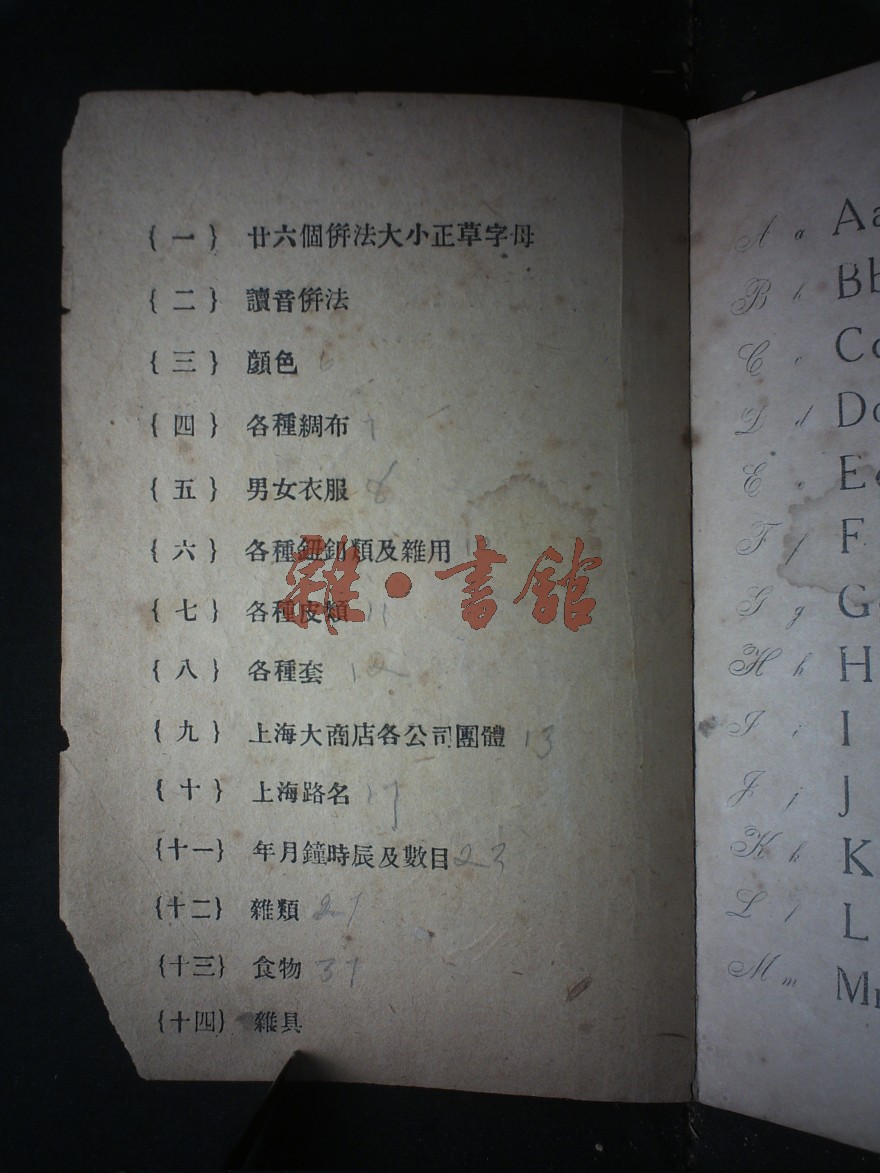 {一} 廿六個併法大小正草字母
{二} 讀音併法
{三} 顏色 6
{四} 各種綢布 7
{五} 男女衣服 8
{六} 各種鈕釦類及雜用
{七} 各種皮類 11
{八} 各種套 12
{九} 上海大商店各公司團體 13
{十} 上海路名 17
{十一} 年月鐘時辰及數目 23
{十二} 雜類
{十三} 食物
{十四} 雜具
雜·書館
A a Aa
B b Bb
C c
D d
E e
F f F
G g G
H h H
I i I
J j J
K k K
L l L
M m